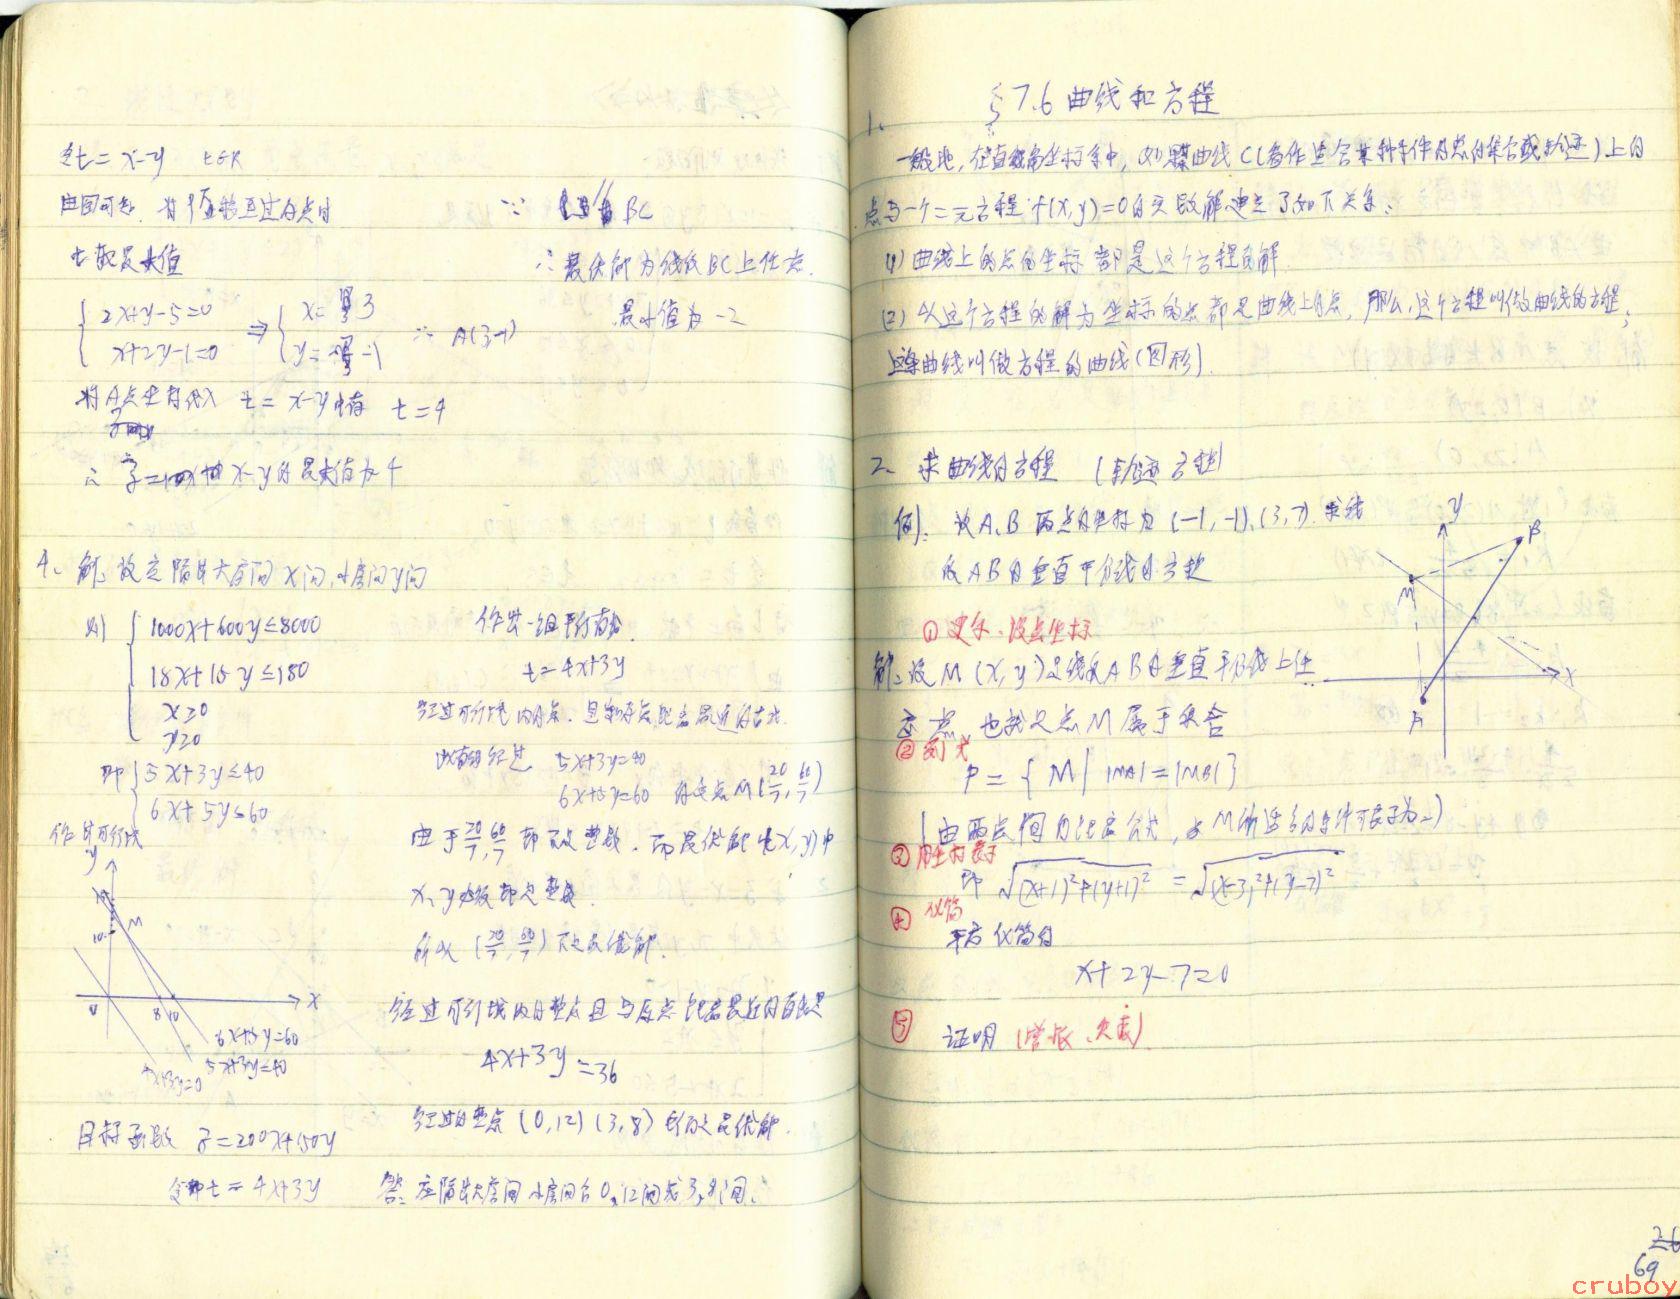 令t=x-y t∈R
由图可知,将 直线 过A点时
t取最大值
{ 2x+y-5=0
x+2y-1=0
⇒ { x=3
y=-1
∴ A(3,-1)
将A点坐标代入 t=x-y 有 t=4
∴ x-y的最大值为4
∵ BC
∴ 最优解为线段BC上任意点.
最小值为-2
4、解:设应隔出大房间x间,小房间y间
则 { 1000x+600y≤8000
18x+15y≤180
x≥0
y≥0
即 { 5x+3y≤40
6x+5y≤60
作出可行域
y
M
10
0
8
10
x
6x+5y=60
5x+3y=40
4x+3y=0
目标函数 z=200x+150y
令 t=4x+3y
作出一组平行直线
t=4x+3y
经过可行域内的点,且和原点距离最远的直线.
此直线经过 5x+3y=40
6x+5y=60 的交点M(20/7, 60/7)
由于20/7, 60/7都不是整数,而最优解(x,y)中
x、y必须都是整数.
所以(20/7, 60/7)不是最优解.
经过可行域内的整点且与原点距离最远的直线是
4x+3y=36
经过的整点(0,12)(3,8)它们是最优解.
答:应隔出大房间小房间各0,12间或3,8间.
§7.6 曲线和方程
1.
一般地,在直角坐标系中,如果某曲线C(看作适合某种条件的点的集合或轨迹)上的
点与一个二元方程f(x,y)=0的实数解建立了如下关系:
(1)曲线上的点的坐标都是这个方程的解
(2)以这个方程的解为坐标的点都是曲线上的点,那么,这个方程叫做曲线的方程;
这条曲线叫做方程的曲线(图形).
2、求曲线的方程 (轨迹方程)
例:设A、B两点的坐标为(-1,-1),(3,7).求线
段AB的垂直平分线的方程
y
B
M
x
A
① 建系、设点坐标
解:设M(x,y)是线段AB的垂直平分线上任
意点,也就是点M属于集合
② 列式
P={M| |MA|=|MB|}
(由两点间的距离公式,点M所适合的条件可表示为:)
③ 用坐标表示
即 √(x+1)²+(y+1)² = √(x-3)²+(y-7)²
④ 化简
平方化简得
x+2y-7=0
⑤ 证明(增根、欠或)
26
69
cruboy